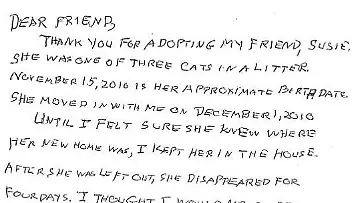 DEAR FRIEND,
THANK YOU FOR ADOPTING MY FRIEND, SUSIE.
SHE WAS ONE OF THREE CATS IN A LITTER.
NOVEMBER 15, 2010 IS HER APPROXIMATE BIRTHDATE.
SHE MOVED IN WITH ME ON DECEMBER 1, 2010
UNTIL I FELT SURE SHE KNEW WHERE
HER NEW HOME WAS, I KEPT HER IN THE HOUSE.
AFTER SHE WAS LEFT OUT, SHE DISAPPEARED FOR
FOUR DAYS. I THOUGHT I WOULD